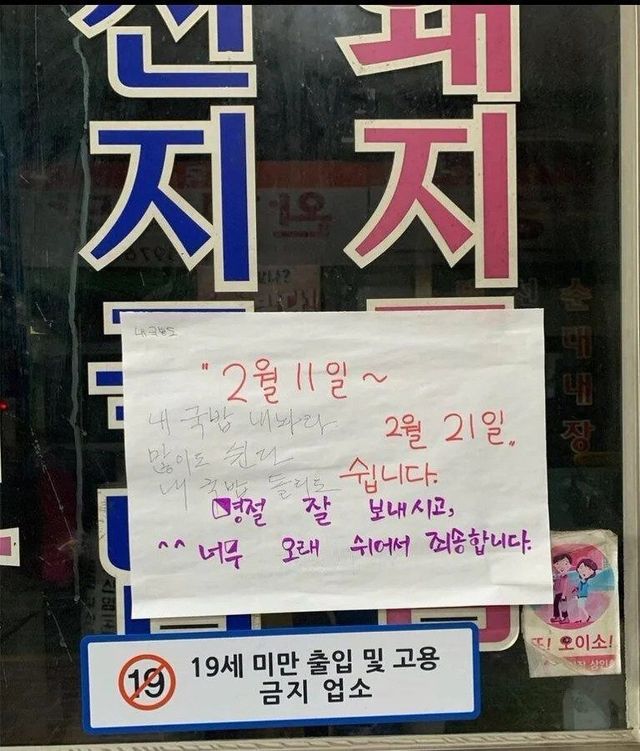 선 돼
지 지
내 국밥도
" 2월 11일 ~
내 국밥 내놔라
2월 21일 „
많이도 쉰다
쉽니다.
내 국밥
명절 잘 보내시고,
^^ 너무 오래 쉬어서 죄송합니다.
순대내장
또! 오이소!
19
19세 미만 출입 및 고용
금지 업소